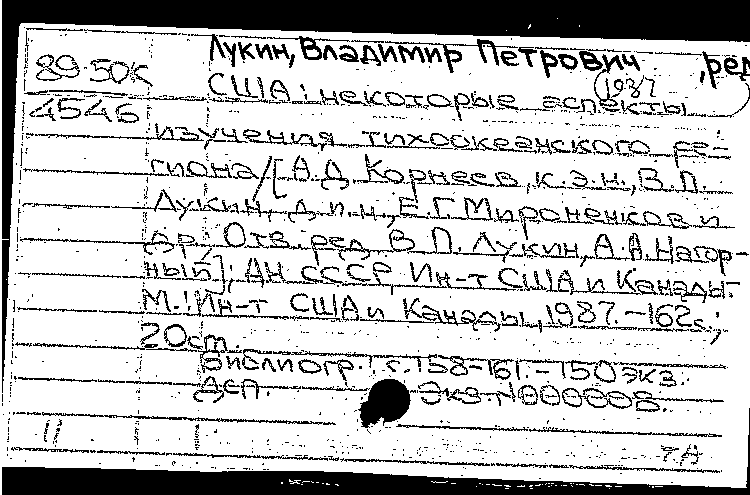 Лукин, Владимир Петрович, ред
89-50К
(1987
США: некоторые аспекты
4546
изучения тихоокеанского ре-
гиона / [А.Д. Корнеев, к.э.н., В.П.
Лукин, д.и.н., Е.Г. Мироненков и
др.; Отв. ред. В.П. Лукин, А.А. Нагор-
ный]; АН СССР, Ин-т США и Канады.-
М.: Ин-т США и Канады, 1987.-162с.;
20cm.
Библиогр.: с.158-161.-150 экз.
ДСП. Экз. N000008.
11